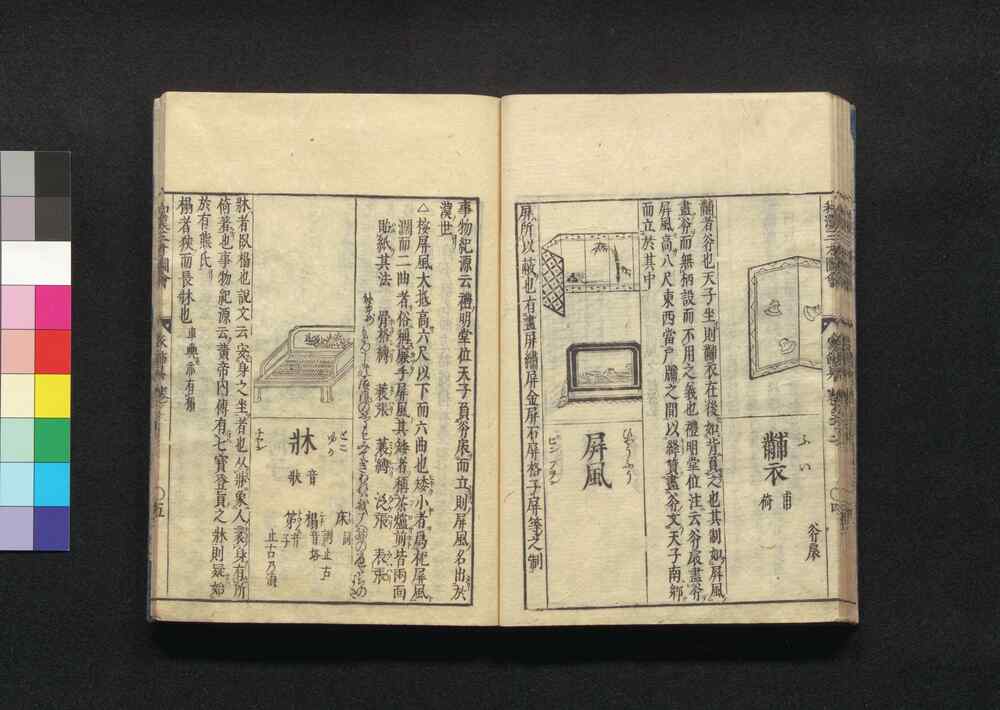 ふい
黼衣
甫
斧扆
黼者斧也天子坐則黼衣在後如背負之也其制如屏風
畫斧而無柄設而不用之義也禮明堂位注云斧扆畫斧
屏風高八尺東西當戸牖之間以絳質畫斧文天子南郷
而立於其中
屏風
ピンフヲン
屏所以蔽也有畫屏繡屏金屏石屏格子屏等之制
事物紀源云禮明堂位天子負斧扆而立則屏風名出於
漢世
△按屏風大抵高六尺以下而六曲也矮小者爲枕屏風
濶而二曲者俗稱勝手屏風其矮者稱茶爐前皆兩面
貼紙其法
骨搭縛
蓑張
蓑縛
泛張
表張
とこ
ゆか
牀
音
床
榻
音塔
第
音子
牀者臥榻也說文云安身之坐者也从爿象人衺身有所
倚著也事物紀源云黃帝內傳有七寶登眞之牀則疑始
於有熊氏
榻者狹而長牀也